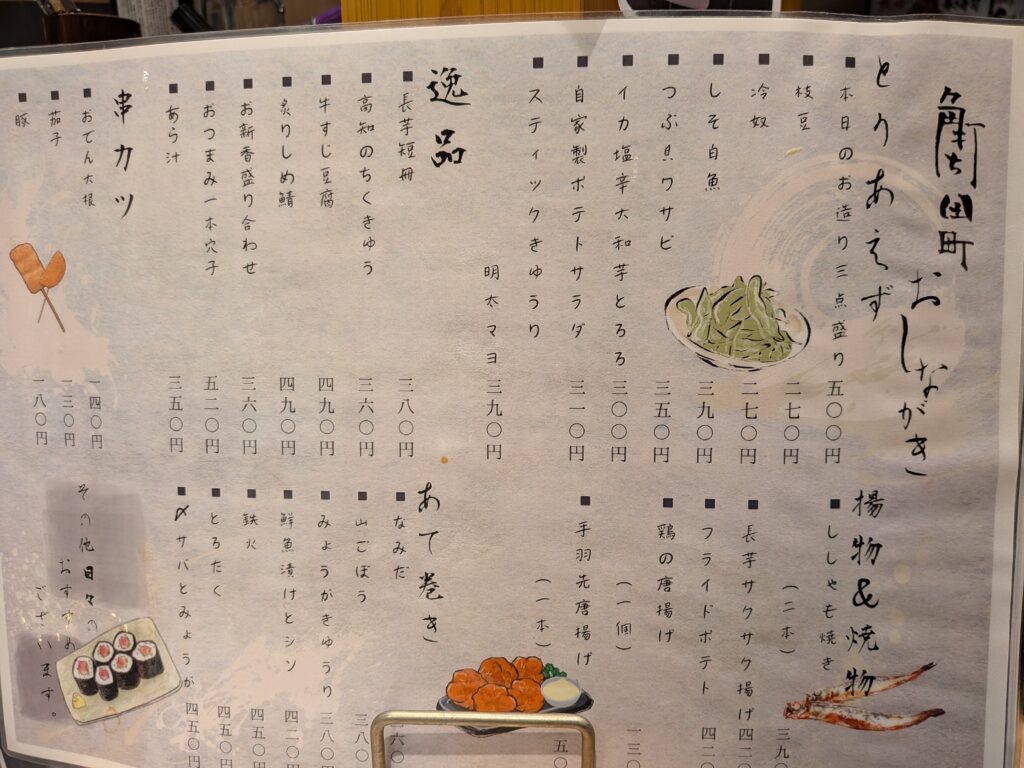 角打ち田町
おしながき
とりあえず
■本日のお造り三点盛り 五〇〇円
■枝豆 二七〇円
■冷奴 二七〇円
■しそ白魚 三九〇円
■つぶ貝ワサビ 三五〇円
■イカ塩辛大和芋とろろ 三〇〇円
■自家製ポテトサラダ 三一〇円
■スティックきゅうり
明太マヨ 三九〇円
逸品
■長芋短冊 三八〇円
■高知のちくきゅう 三六〇円
■牛すじ豆腐 四九〇円
■炙りしめ鯖 四九〇円
■お新香盛り合わせ 三六〇円
■おつまみ一本穴子 五二〇円
■あら汁 三五〇円
串カツ
■おでん大根 一四〇円
■茄子 一三〇円
■豚 一八〇円
揚物&焼物
■ししゃも焼き
(二本) 三九〇
■長芋サクサク揚げ 四二〇
■フライドポテト 四二〇
■鶏の唐揚げ
(一個) 一三〇
■手羽先唐揚げ
(一本) 五〇
あて巻き
■なみだ 六〇
■山ごぼう 三八〇
■みょうがきゅうり 三八〇円
■鮮魚漬けとシソ 四二〇円
■鉄火 四五〇円
■とろたく 四五〇円
■〆サバとみょうが 四五〇円
その他日々の
おすすめ
ございます。